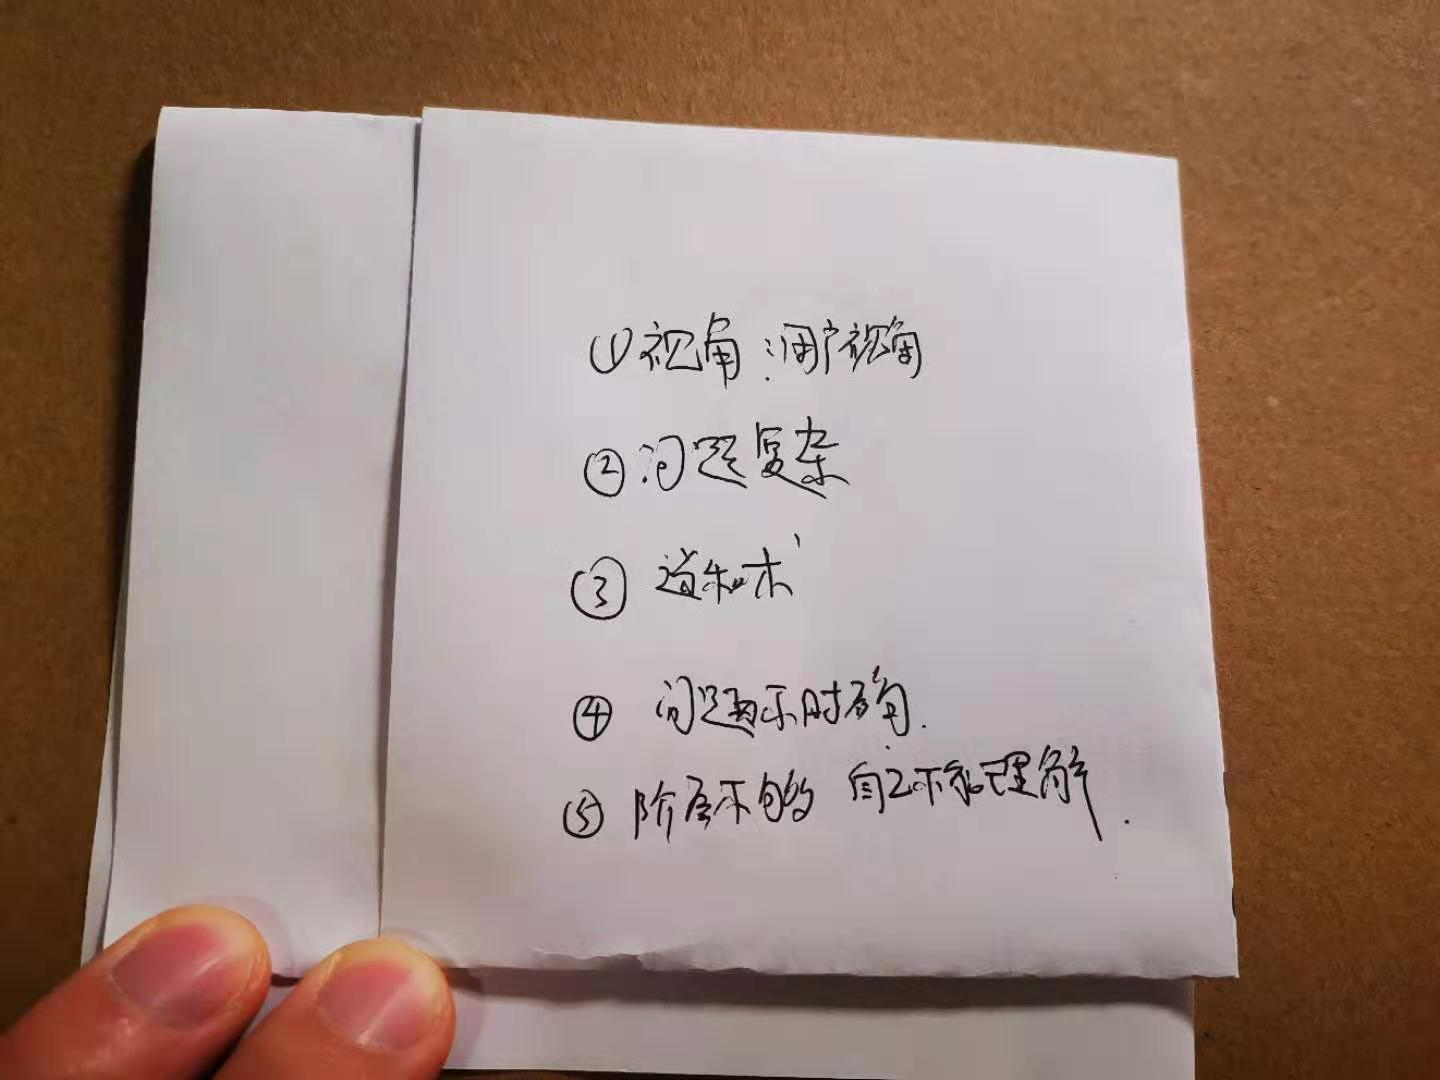 ①视角：用户视角
②问题复杂
③ 道和术
④ 问题要乐时确.
⑤ 阶层不够 自己不能理解.